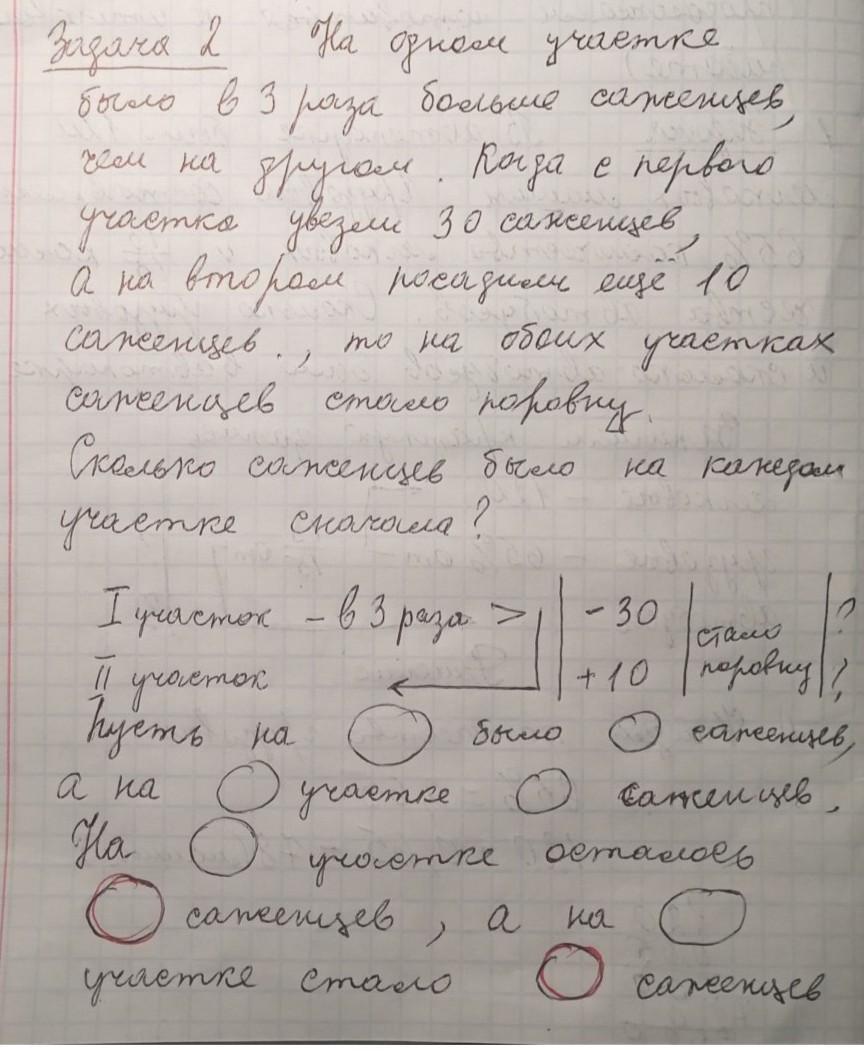 Задача 2 На одном участке
было в 3 раза больше саженцев,
чем на другом. Когда с первого
участка увезли 30 саженцев,
а на втором посадили ещё 10
саженцев., то на обоих участках
саженцев стало поровну.
Сколько саженцев было на каждом
участке сначала?
I участок - в 3 раза > | - 30 | стало поровну | ?
II участок | + 10 | ?
Пусть на было саженцев,
а на участке саженцев.
На участке осталось
саженцев, а на
участке стало саженцев